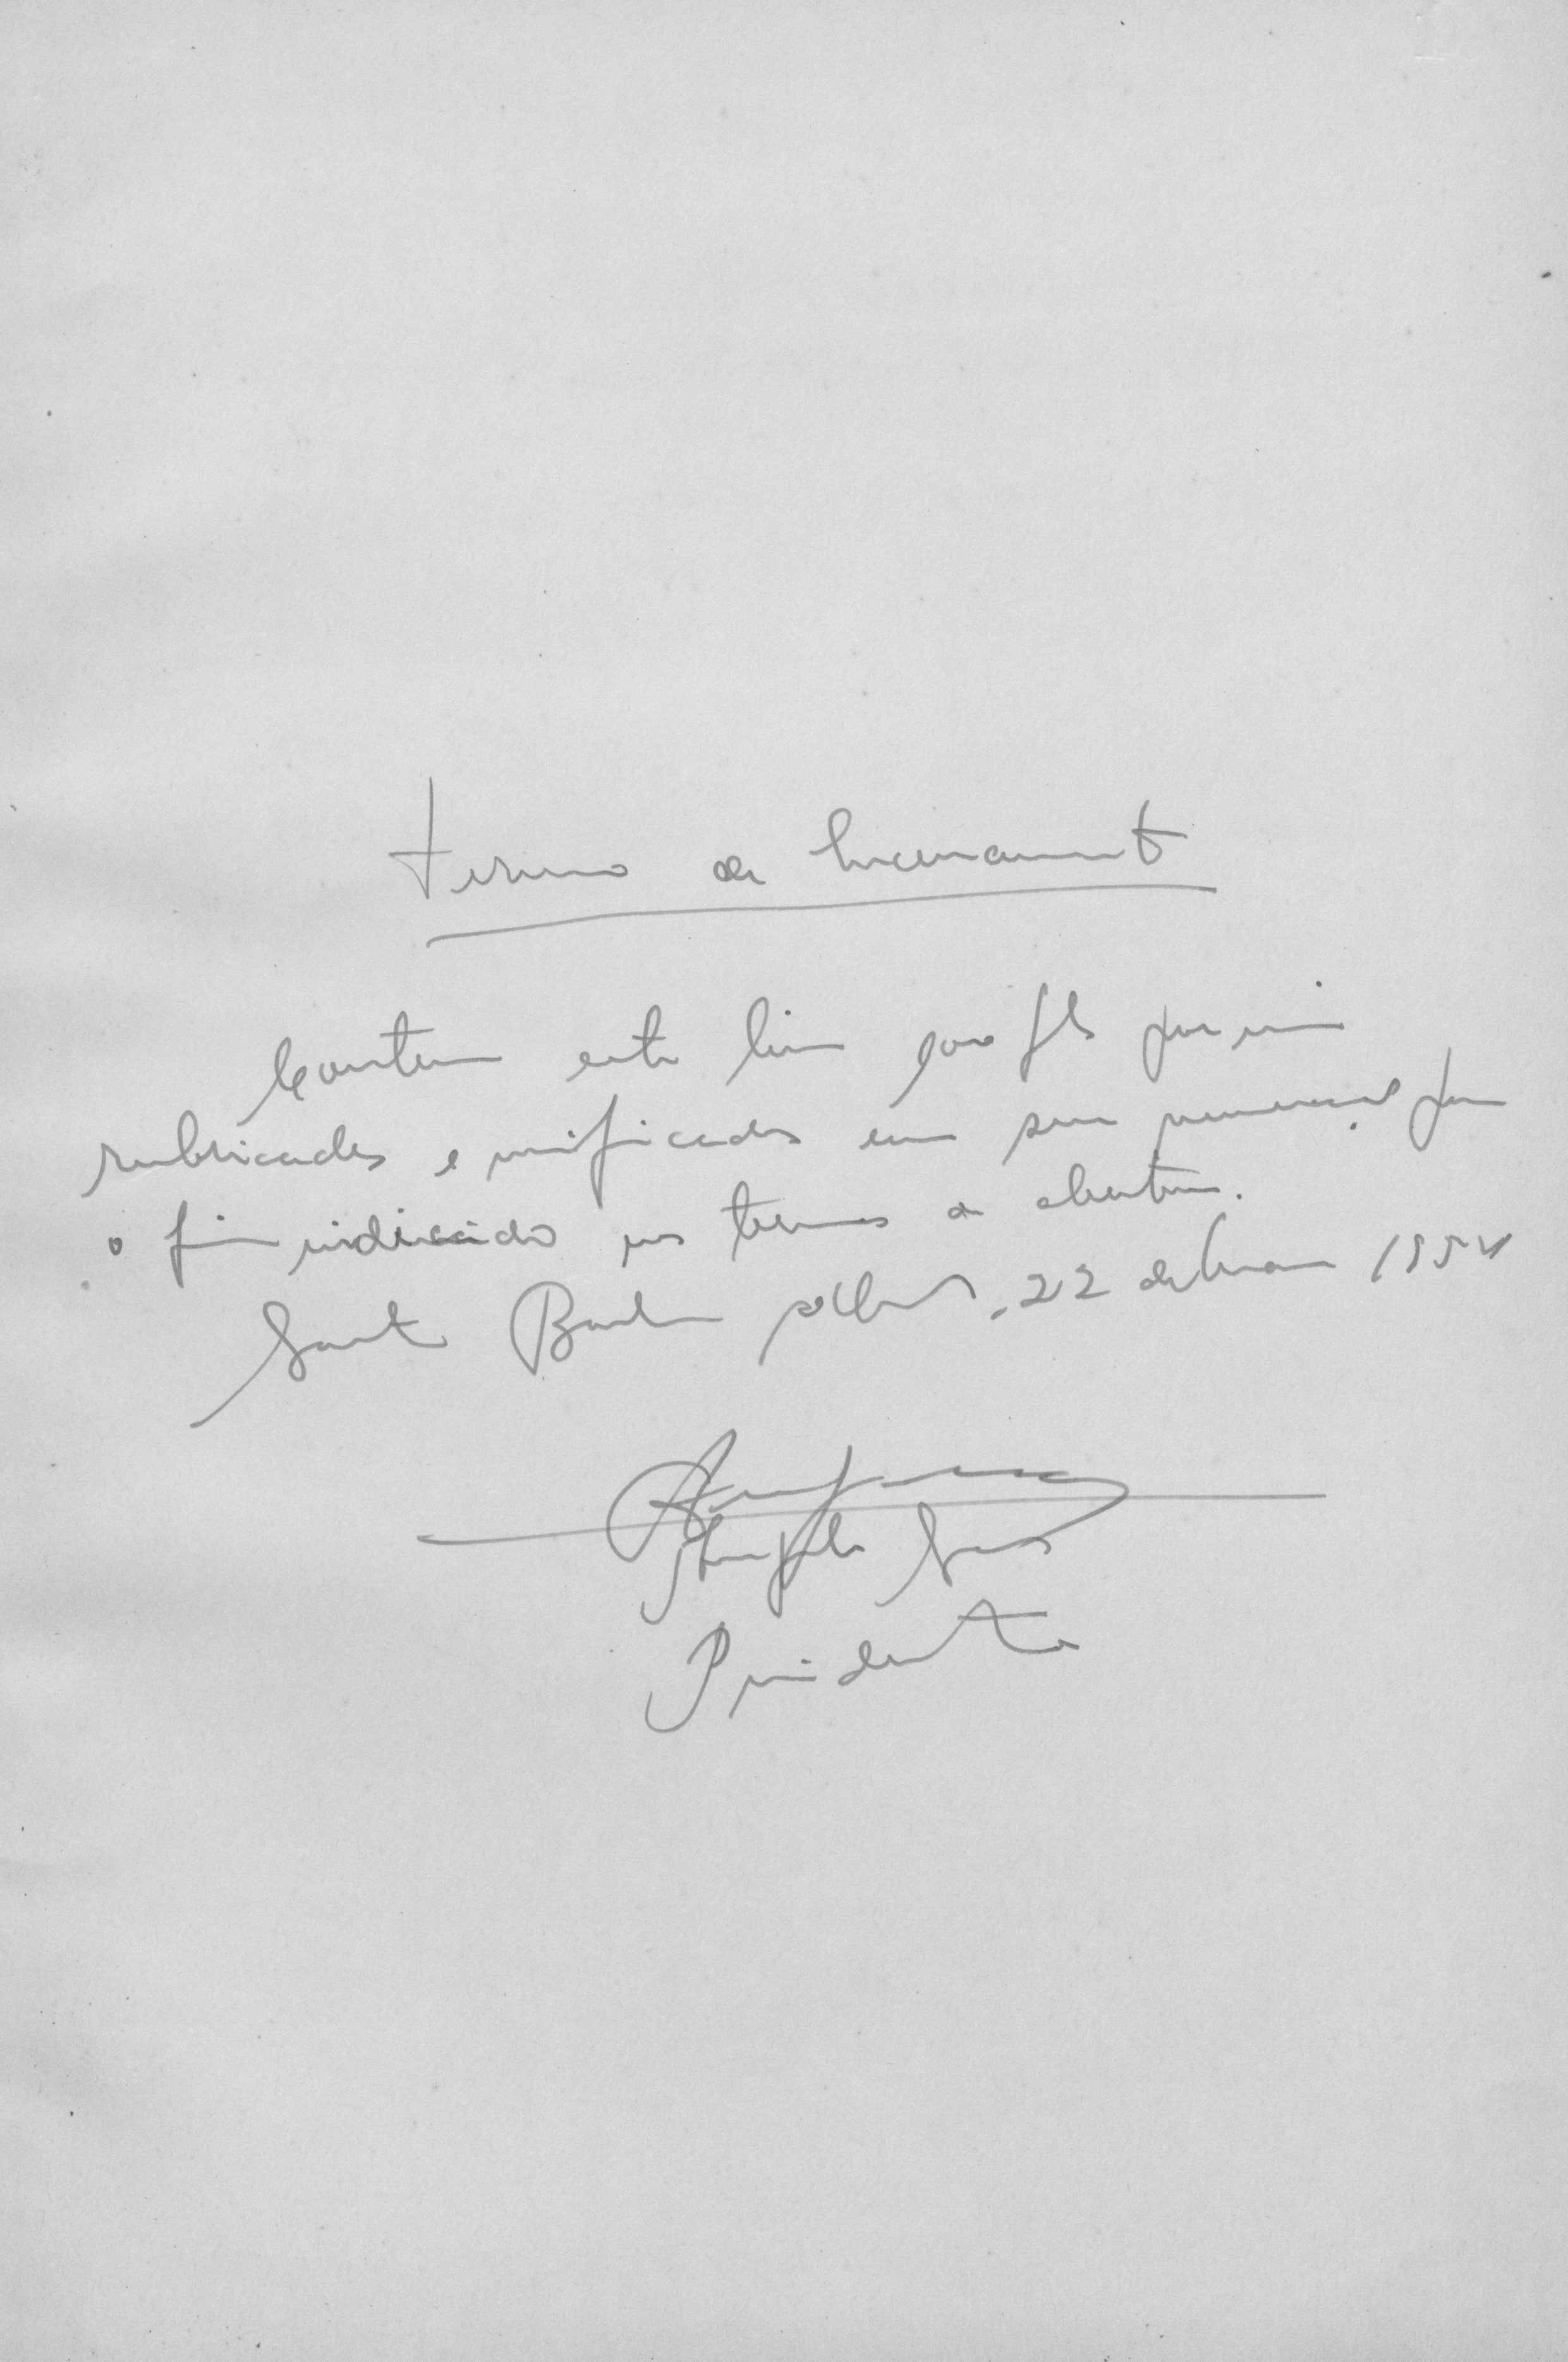 Termo de Encerramento
Contem este livro fls por mim
rubricadas e verificadas em sua numeração para
o fim indicado no termo de abertura.
Santa Barbara d'Oeste, 22 de 195
Presidente